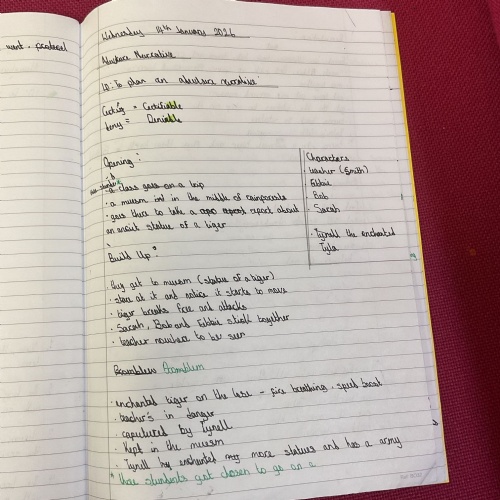 want. protocol
Wednesday 14th January 2026
Narrative
LO: To plan an adventure narrative
Certify = Certifiable
Deny = Deniable
Opening:
Characters
• a class goes on a trip
• teacher (Smith)
• a musem in the middle of
• Bob
• goes there to take a report about
• Sarah
an ancient statue of a tiger
• Tyrell the enchanted
Build Up:
• they get to musem (statue of a tiger)
• stare at it and notice it starts to move
• tiger breaks free and attacks
• Sarah, Bob and stick together
• teacher nowhere to be seen
Promblem
• enchanted tiger on the lose - fire breathing. speed boost
• teacher's in danger
• captured by Tyrell
• Kept in the musem
• Tyrell has enchanted more statues and has a army
* three stundents get chosen to go on a